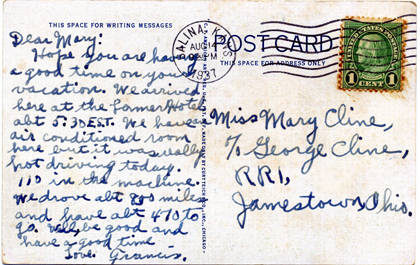 THIS SPACE FOR WRITING MESSAGES
Dear Mary:
Hope you are having
a good time on your
vacation. We arrived
here at the Lamer Hotel
abt 5:30 EST. We have
air conditioned room
here but it was really
hot driving today.
110 in the machine.
We drove abt 800 miles
and have abt 470 to
go. Will, be good and
have a good time -
Love. Francis.
SALINA, KANS
AUG
PM
1937
POST CARD
THIS SPACE FOR ADDRESS ONLY
1 1
Miss Mary Cline,
℅ George Cline,
RR1,
Jamestown, Ohio.